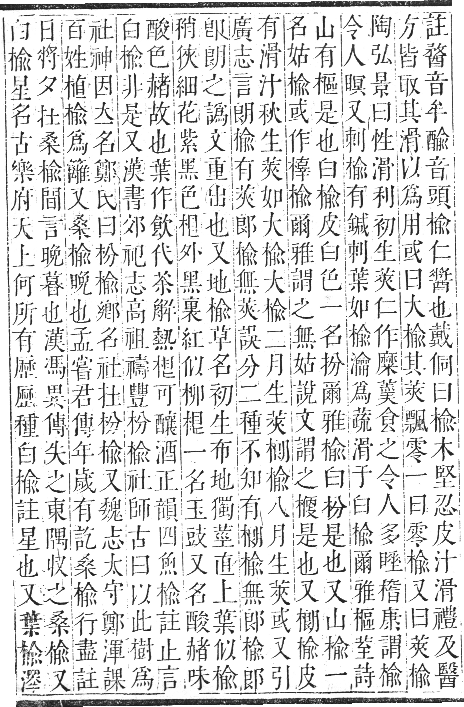 註醔音牟酴音頭榆仁醬也戴侗曰榆木堅忍皮汁滑禮及醫
方皆取其滑以爲用或曰大榆其莢飄零一曰零榆又曰莢榆
陶弘景曰性滑利初生莢仁作糜羹食之令人多睡嵇康謂榆
令人瞑又刺榆有鍼刺葉如榆瀹爲蔬滑于白榆爾雅樞荎詩
山有樞是也白榆皮白色一名枌爾雅榆白枌是也又山榆一
名姑榆或作橭榆爾雅謂之無姑說文謂之梗是也又榔榆皮
有滑汁秋生莢如大榆大榆二月生莢榔榆八月生莢或又引
廣志言朗榆有莢郎榆無莢誤分二種不知有榔榆無郎榆郎
卽朗之譌文重出也又地榆草名初生布地獨莖直上葉似榆
稍狹細花紫黑色根外黑裏紅似柳根一名玉豉又名酸赭味
酸色赭故也葉作飮代茶解熱根可釀酒正韻四魚榆註止言
白榆非是又漢書郊祀志高祖禱豐枌榆社師古曰以此樹爲
社神因立名鄭氏曰枌榆鄉名社在枌榆又魏志太守鄭渾課
百姓植榆爲籬又桑榆晚也孟嘗君傳年歲有訖桑榆行盡註
日將夕在桑榆間言晚暮也漢馮異傳失之東隅收之桑榆又
白榆星名古樂府天上何所有歷歷種白榆註星也又葉榆澤